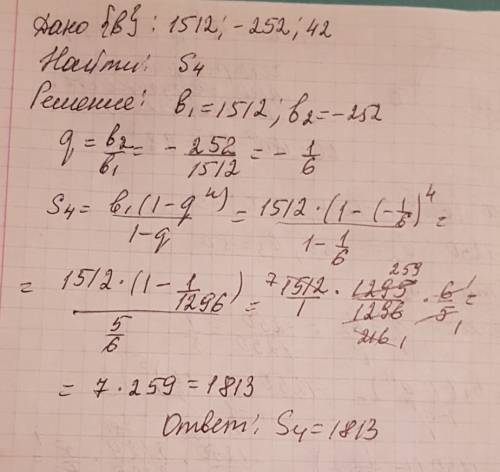 Дано {B}: 1512; -252; 42
Найти: S₄
Решение: b₁ = 1512; b₂ = -252
q = b₂/b₁ = -252/1512 = -1/6
S₄ = b₁(1-qⁿ)/1-q = 1512·(1-(-1/6)⁴/1-1/6 =
= 1512·(1-1/1296)/5/6 = ⁷1512/1 · 1295 259/1296 216 1 · 6 1/5 1 =
= 7·259 = 1813
Ответ: S₄ = 1813